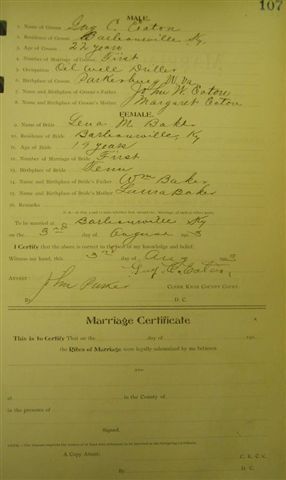 107
MALE.
1. Name of Groom Guy C. Eaton
2. Residence of Groom Barbourville Ky
3. Age of Groom 22 years
4. Number of Marriage of Groom First
5. Occupation Oil well Driller
6. Birthplace of Groom Parkersburg W Va
7. Name and Birthplace of Groom's Father John W Eaton
8. Name and Birthplace of Groom's Mother Margaret Eaton
FEMALE.
9. Name of Bride Lena M Baker
10. Residence of Bride Barbourville, Ky
11. Age of Bride 19 years
12. Number of Marriage of Bride First
13. Birthplace of Bride Tenn
14. Name and Birthplace of Bride's Father Wm Baker
15. Name and Birthplace of Bride's Mother Laura Baker
16. Remarks
To be married at Barbourville Ky
on the 3rd day of August 1903
I Certify that the above is correct to the best of my knowledge and belief.
Witness my hand, this 3rd day of Aug 1903
Guy C. Eaton
Attest:
CLERK KNOX COUNTY COURT.
John Parker
By D. C.
Marriage Certificate
This is to Certify That on the day of 190
the Rites of Marriage were legally solemnized by me between
AND
at in the County of
in the presence of
Signed,
A Copy Attest: C. K. C. C.
By D. C.